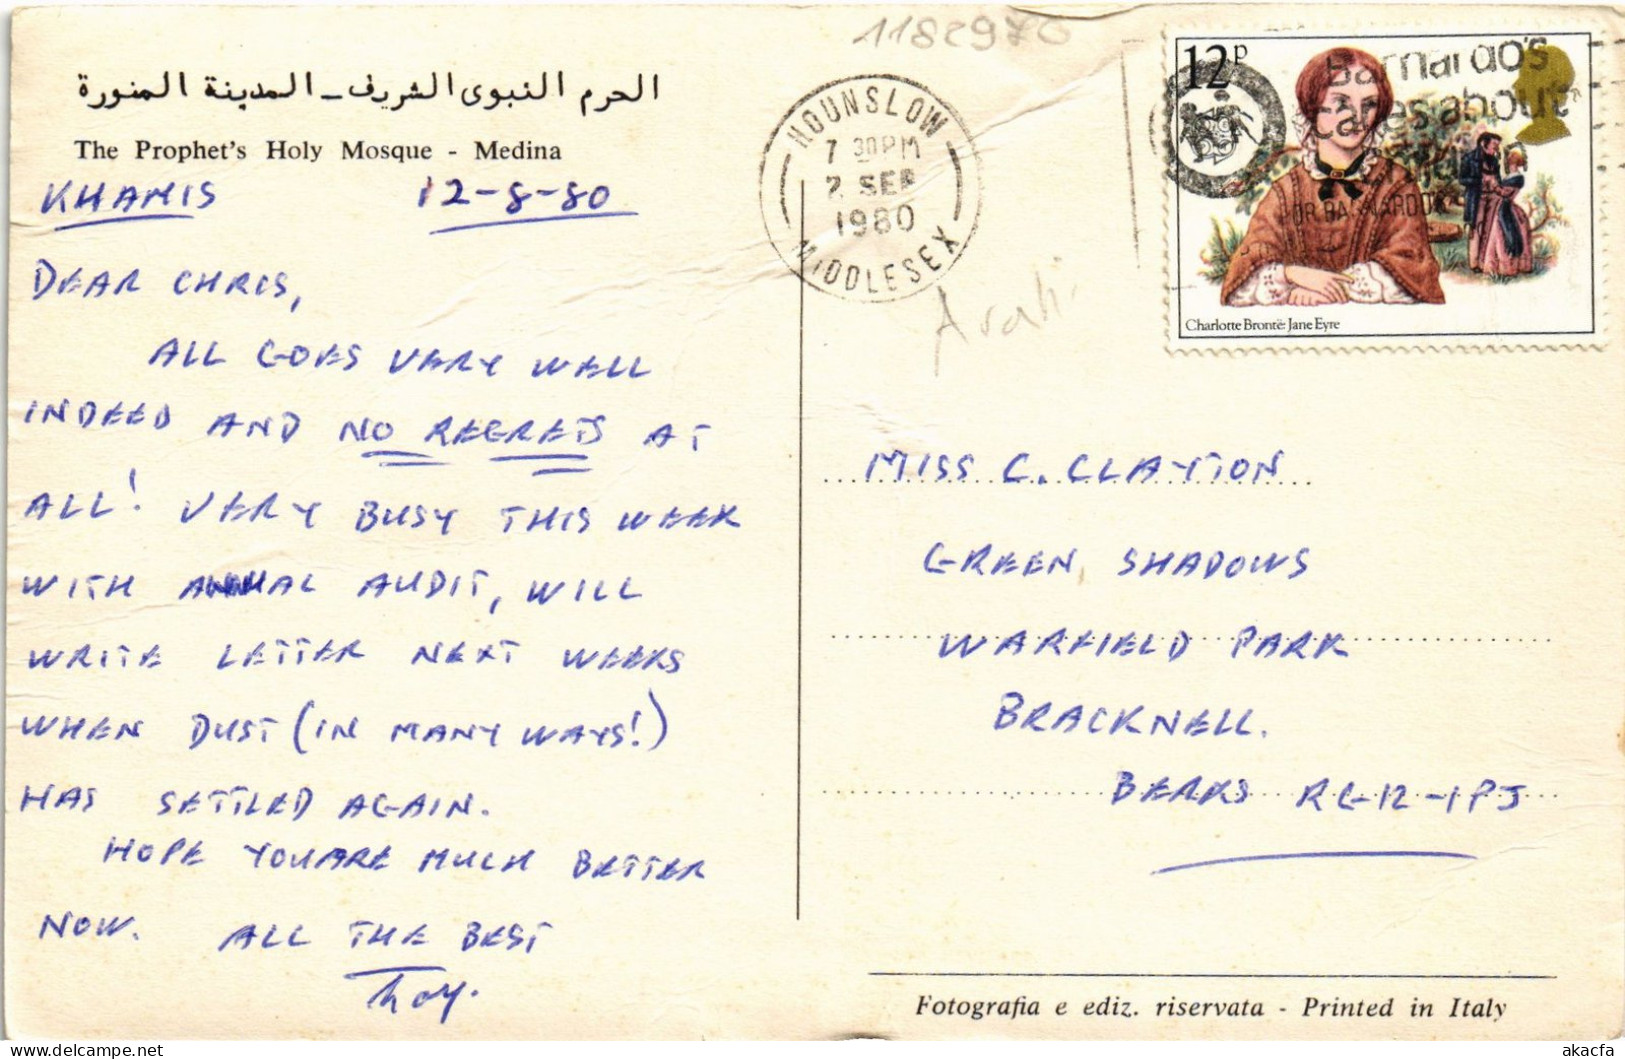 1182970
الحرم النبوى الشريف - المدينة المنورة
The Prophet's Holy Mosque - Medina
KHAMIS 12-8-80
DEAR CHRIS,
ALL GOES VERY WELL
INDEED AND NO REGRETS AT
ALL! VERY BUSY THIS WEEK
WITH ANNUAL AUDIT, WILL
WRITE LETTER NEXT WEEKS
WHEN DUST (IN MANY WAYS!)
HAS SETTLED AGAIN.
HOPE YOU ARE MUCH BETTER
NOW. ALL THE BEST
HOUNSLOW
7 30 PM
2 SEP
1980
MIDDLESEX
12P
Barnardo's
cares about
Charlotte Brontë: Jane Eyre
MISS C. CLAYTON
GREEN SHADOWS
WARFIELD PARK
BRACKNELL.
BERKS RG-12-1PJ
Fotografia e ediz. riservata - Printed in Italy
akacfa